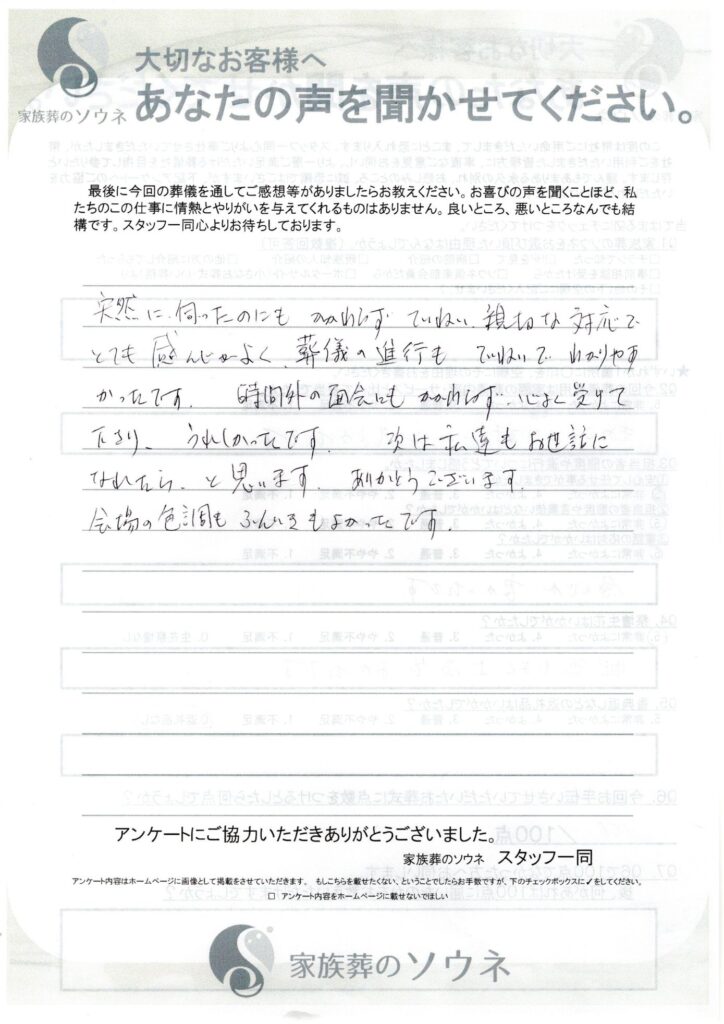 大切なお客様へ
家族葬のソウネ
あなたの声を聞かせてください。
最後に今回の葬儀を通してご感想等がありましたらお教えください。お喜びの声を聞くことほど、私
たちのこの仕事に情熱とやりがいを与えてくれるものはありません。良いところ、悪いところなんでも結
構です。スタッフ一同心よりお待ちしております。
突然に伺ったのにもかかわらずていねい、親切な対応で
とても感んじがよく、葬儀の進行もていねいでわかりやす
かったです。時間外の面会にもかかわらず、心よく受けて
下さり、うれしかったです。次は私達もお世話に
なれたら、と思います。ありがとうございます。
会場の色調もふんいきもよかったです。
アンケートにご協力いただきありがとうございました。
家族葬のソウネ スタッフ一同
アンケート内容はホームページに画像として掲載をさせていただきます。 もしこちらを載せたくない、ということでしたらお手数ですが、下のチェックボックスに✓をしてください。
□ アンケート内容をホームページに載せないでほしい
家族葬のソウネ